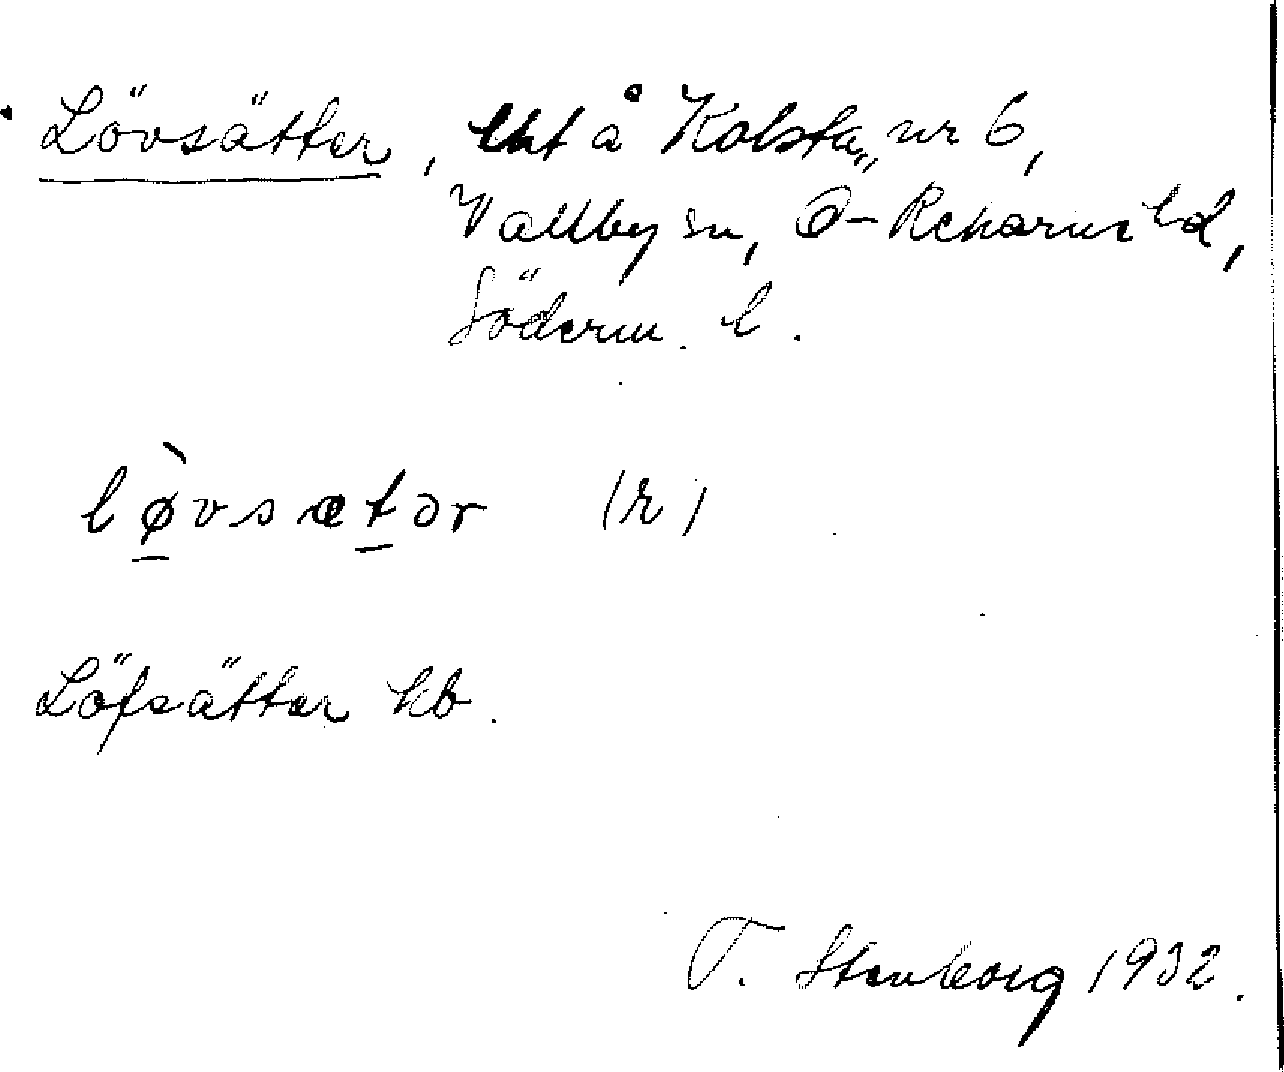 Lövsätter, lht å Kolsta nr 6,
Vallby sn, Ö-Rekarne hd,
Söderm. l.
lø̀vsætər (r)
Löfsätter kb.
T. Stenborg 1932.